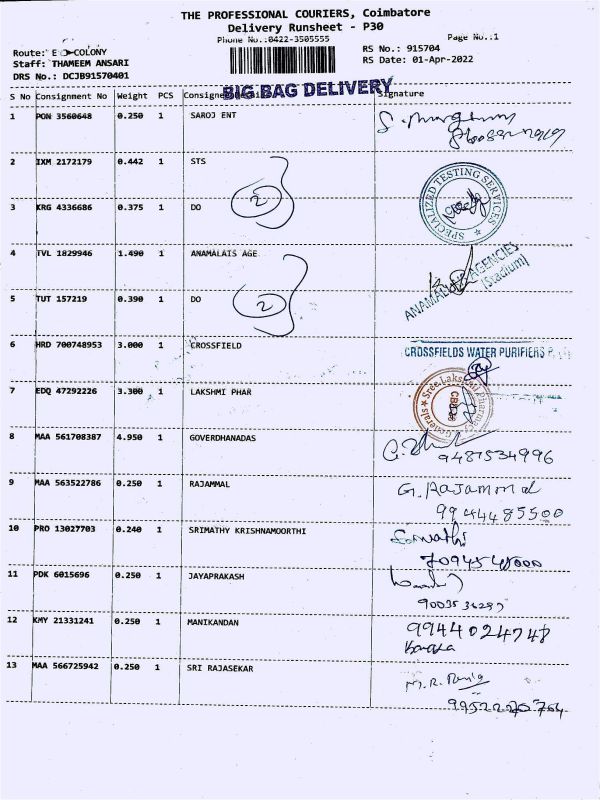 THE PROFESSIONAL COURIERS, Coimbatore
Delivery Runsheet - P30
Phone No.:0422-3505555
Page No.:1
Route: E COLONY
RS No.: 915704
Staff: THAMEEM ANSARI
RS Date: 01-Apr-2022
DRS No.: DCJB91570401
BIG BAG DELIVERY
S No Consignment No Weight PCS Consignee Signature
1 PON 3560648 0.250 1 SAROJ ENT
2 IXM 2172179 0.442 1 STS
SPECIALIZED TESTING SERVICES
3 KRG 4336686 0.375 1 DO 2
4 TVL 1829946 1.490 1 ANAMALAIS AGE
ANAMALAIS AGENCIES
(Stadium)
5 TUT 157219 0.390 1 DO 2
6 HRD 700748953 3.000 1 CROSSFIELD
CROSSFIELDS WATER PURIFIERS
7 EDQ 47292226 3.300 1 LAKSHMI PHAR
Sree Lakshmi Pharmacy & Generals
8 MAA 561708387 4.950 1 GOVERDHANADAS
9487534996
9 MAA 563522786 0.250 1 RAJAMMAL G. Rajammal
9944485500
10 PRO 13027703 0.240 1 SRIMATHY KRISHNAMOORTHI
11 PDK 6015696 0.250 1 JAYAPRAKASH
12 KMY 21331241 0.250 1 MANIKANDAN 9944024748
13 MAA 566725942 0.250 1 SRI RAJASEKAR